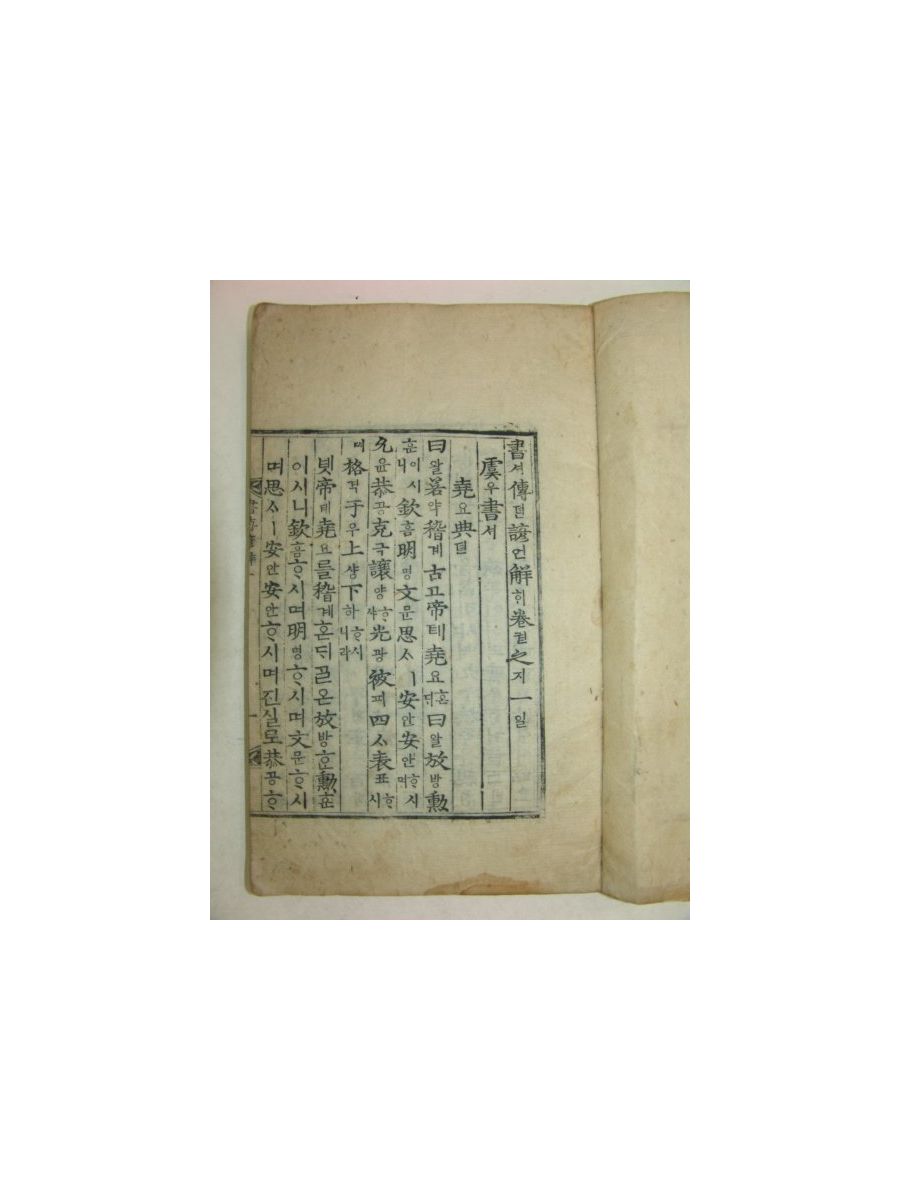 書셔傳뎐諺언解ᄒᆡ卷권之지一일
虞우書셔
堯요典뎐
曰왈若약稽계古고帝뎨堯요ᄒᆞᆫᄃᆡ曰왈放방勳
훈이시니欽흠明명文문思ᄉᆞㅣ安안安안ᄒᆞ시며
允윤恭공克극讓양ᄒᆞ샤光광被피四ᄉᆞ表표ᄒᆞ시
며格격于우上샹下하ᄒᆞ시니라
녯帝뎨堯요를稽계혼ᄃᆡ ᄀᆞᆯ온放방ᄒᆞᆫ勳훈
이시니欽흠ᄒᆞ시며明명ᄒᆞ시며文문ᄒᆞ시
며思ᄉᆞㅣ安안安안ᄒᆞ시며진실로恭공ᄒᆞ